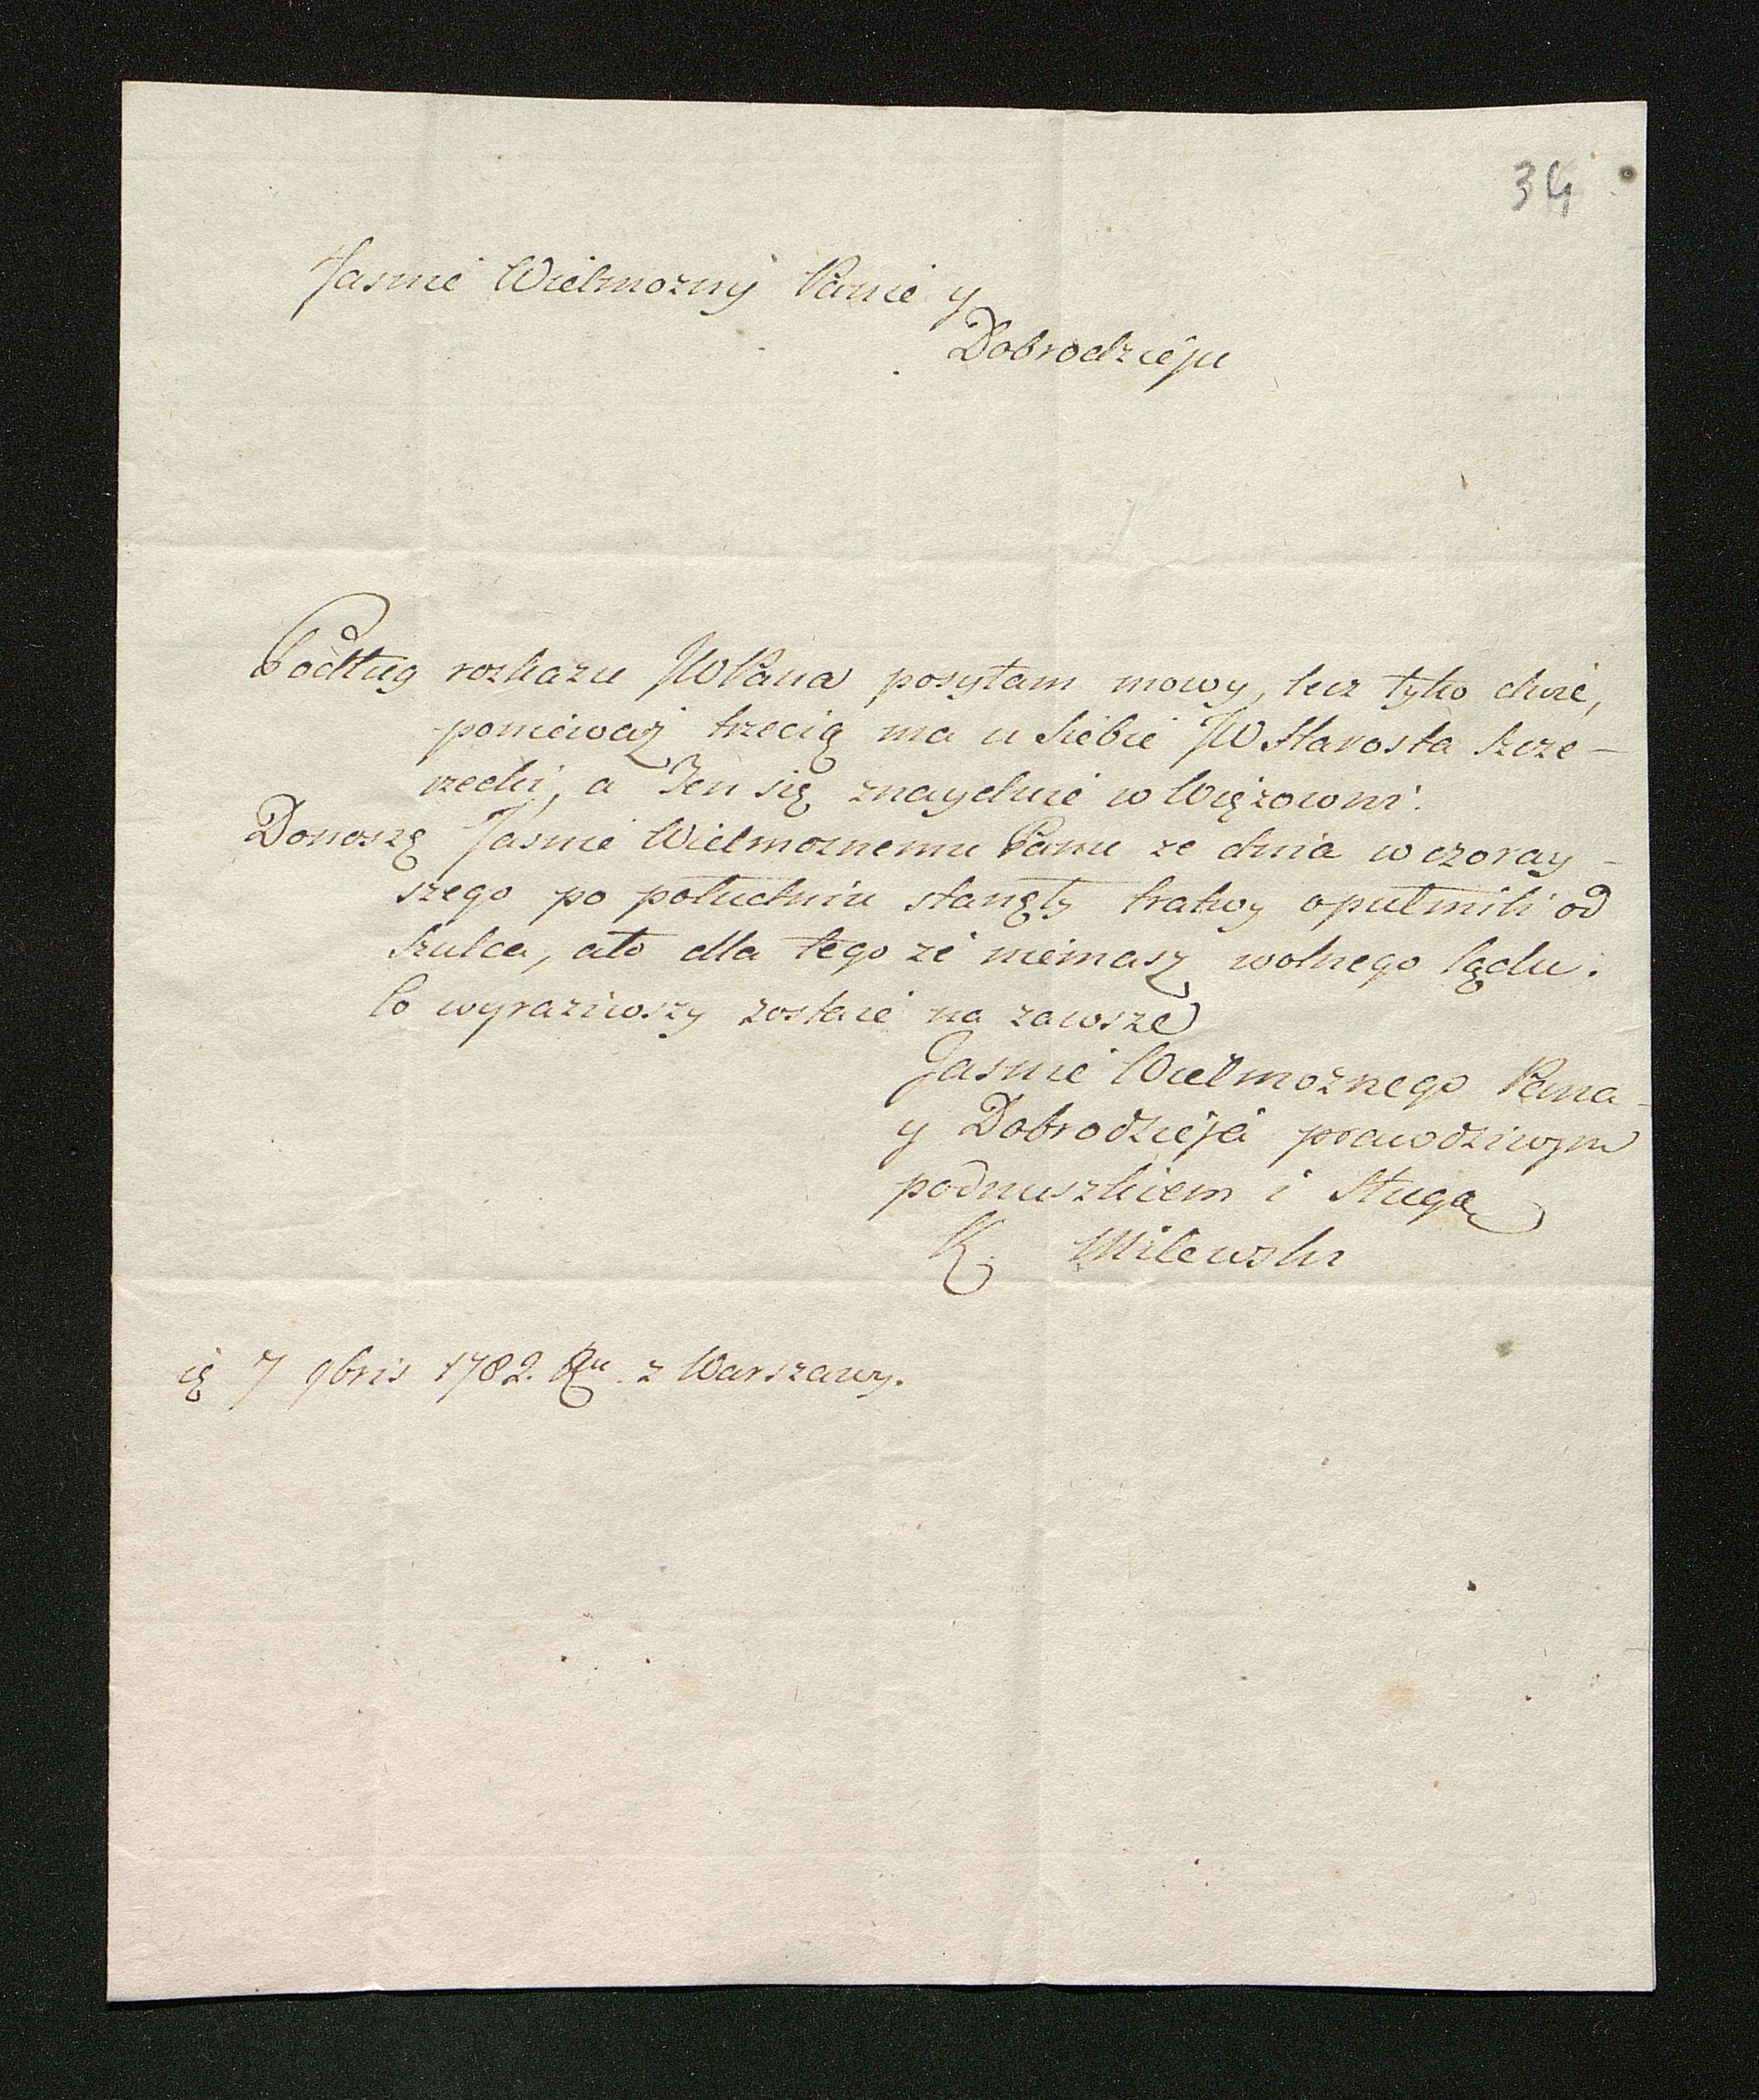 34
Jasnie Wielmozny Panie y
Dobrodzieju
Podług rozkazu JWPana posyłam mowy, lecz tylko dwie,
poniewaz trzecią ma u siebie JW Starosta Szcze-
rzecki, a Ten się znayduie w Wiązowni.
Donoszę Jasnie Wielmoznemu Panu ze dnia wczoray-
szego po południu stanęły tratwy opułmili od
Szulca, ato dla tego ze niemasz wolnego lądu.
Co wyraziwszy zostaie na zawsze
Jasnie Wielmoznego Pana
y Dobrodzieja prawdziwym
podnuszkiem i sługą
K. Milewski
7 9bris 1782. Ru. z Warszawy.